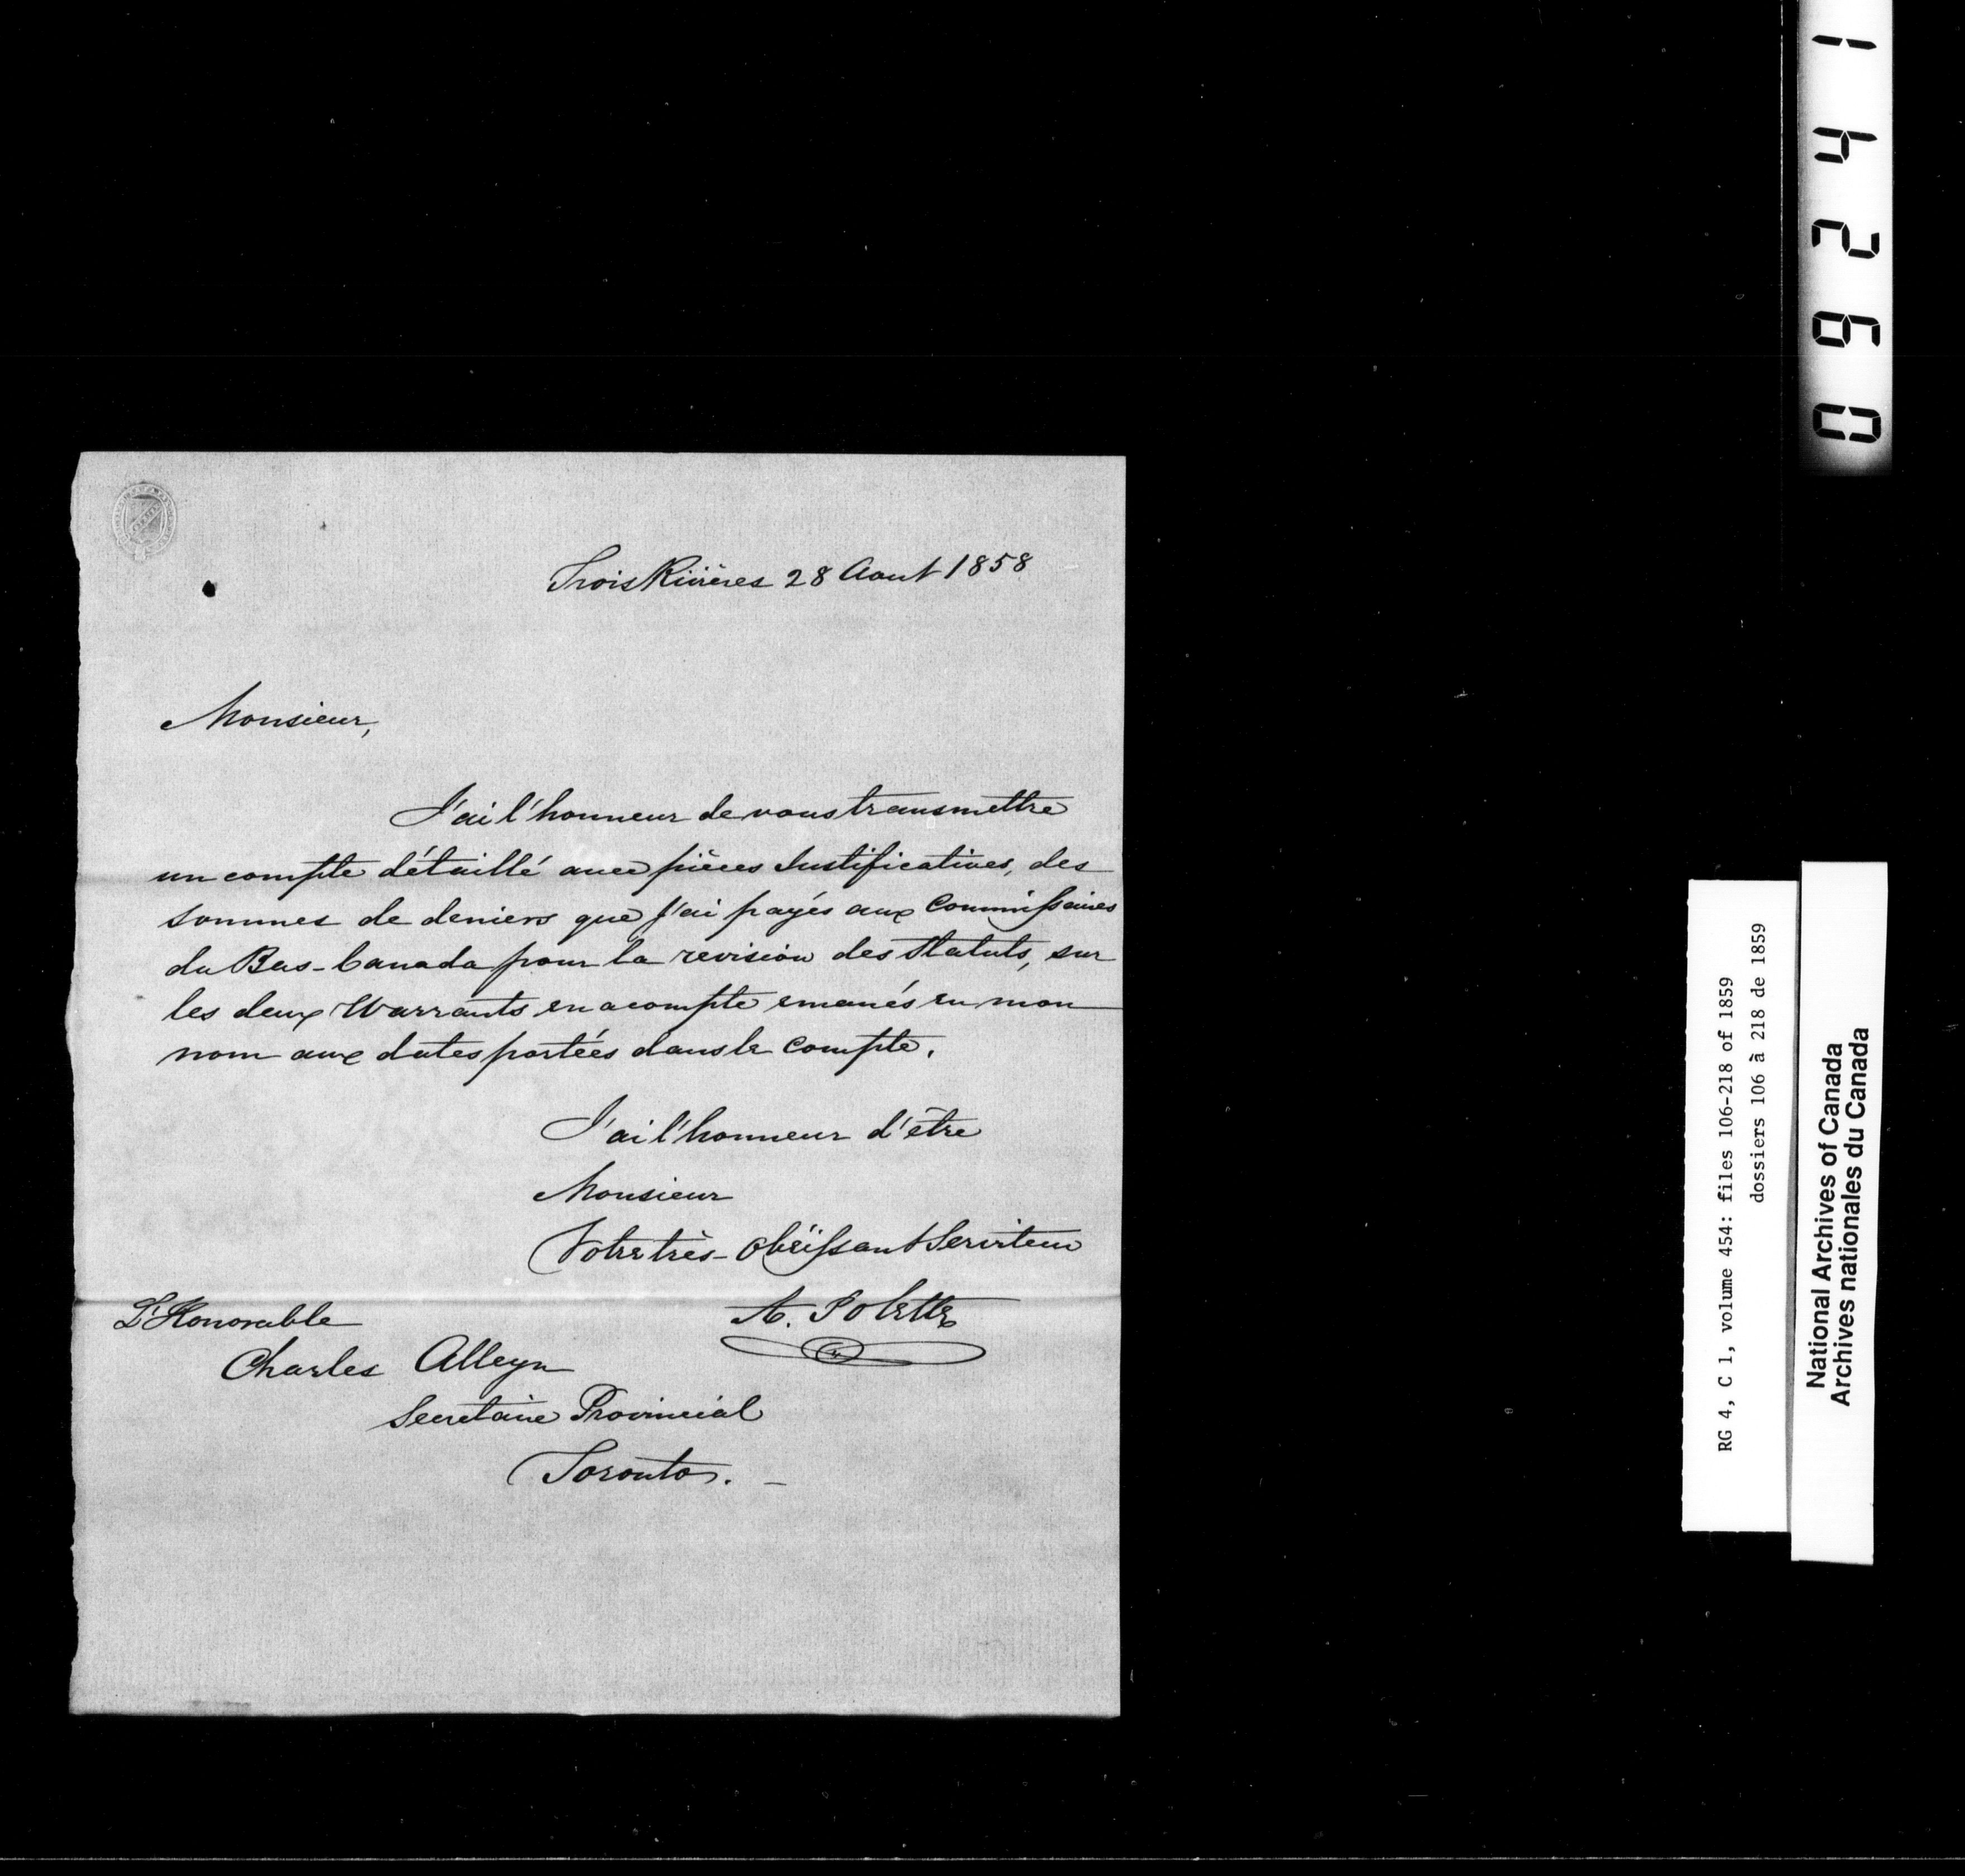 Trois Rivières 28 Aout 1858
Monsieur,
J'ai l'honneur de vous transmettre
un compte détaillé avec pièces Justificatives, des
sommes de deniers que j'ai payés aux Commissaires
du Bas-Canada pour la revision des Statuts, sur
les deux Warrants en acompte emanés en mon
nom aux dates portées dans le Compte.
J'ai l'honneur d'être
Monsieur
Votre très-Obéissant Serviteur
A. Polette
L'Honorable
Charles Alleyn
Secretaire Provincial
Toronto. -
RG 4, C 1, volume 454: files 106-218 of 1859
dossiers 106 à 218 de 1859
National Archives of Canada
Archives nationales du Canada
06241